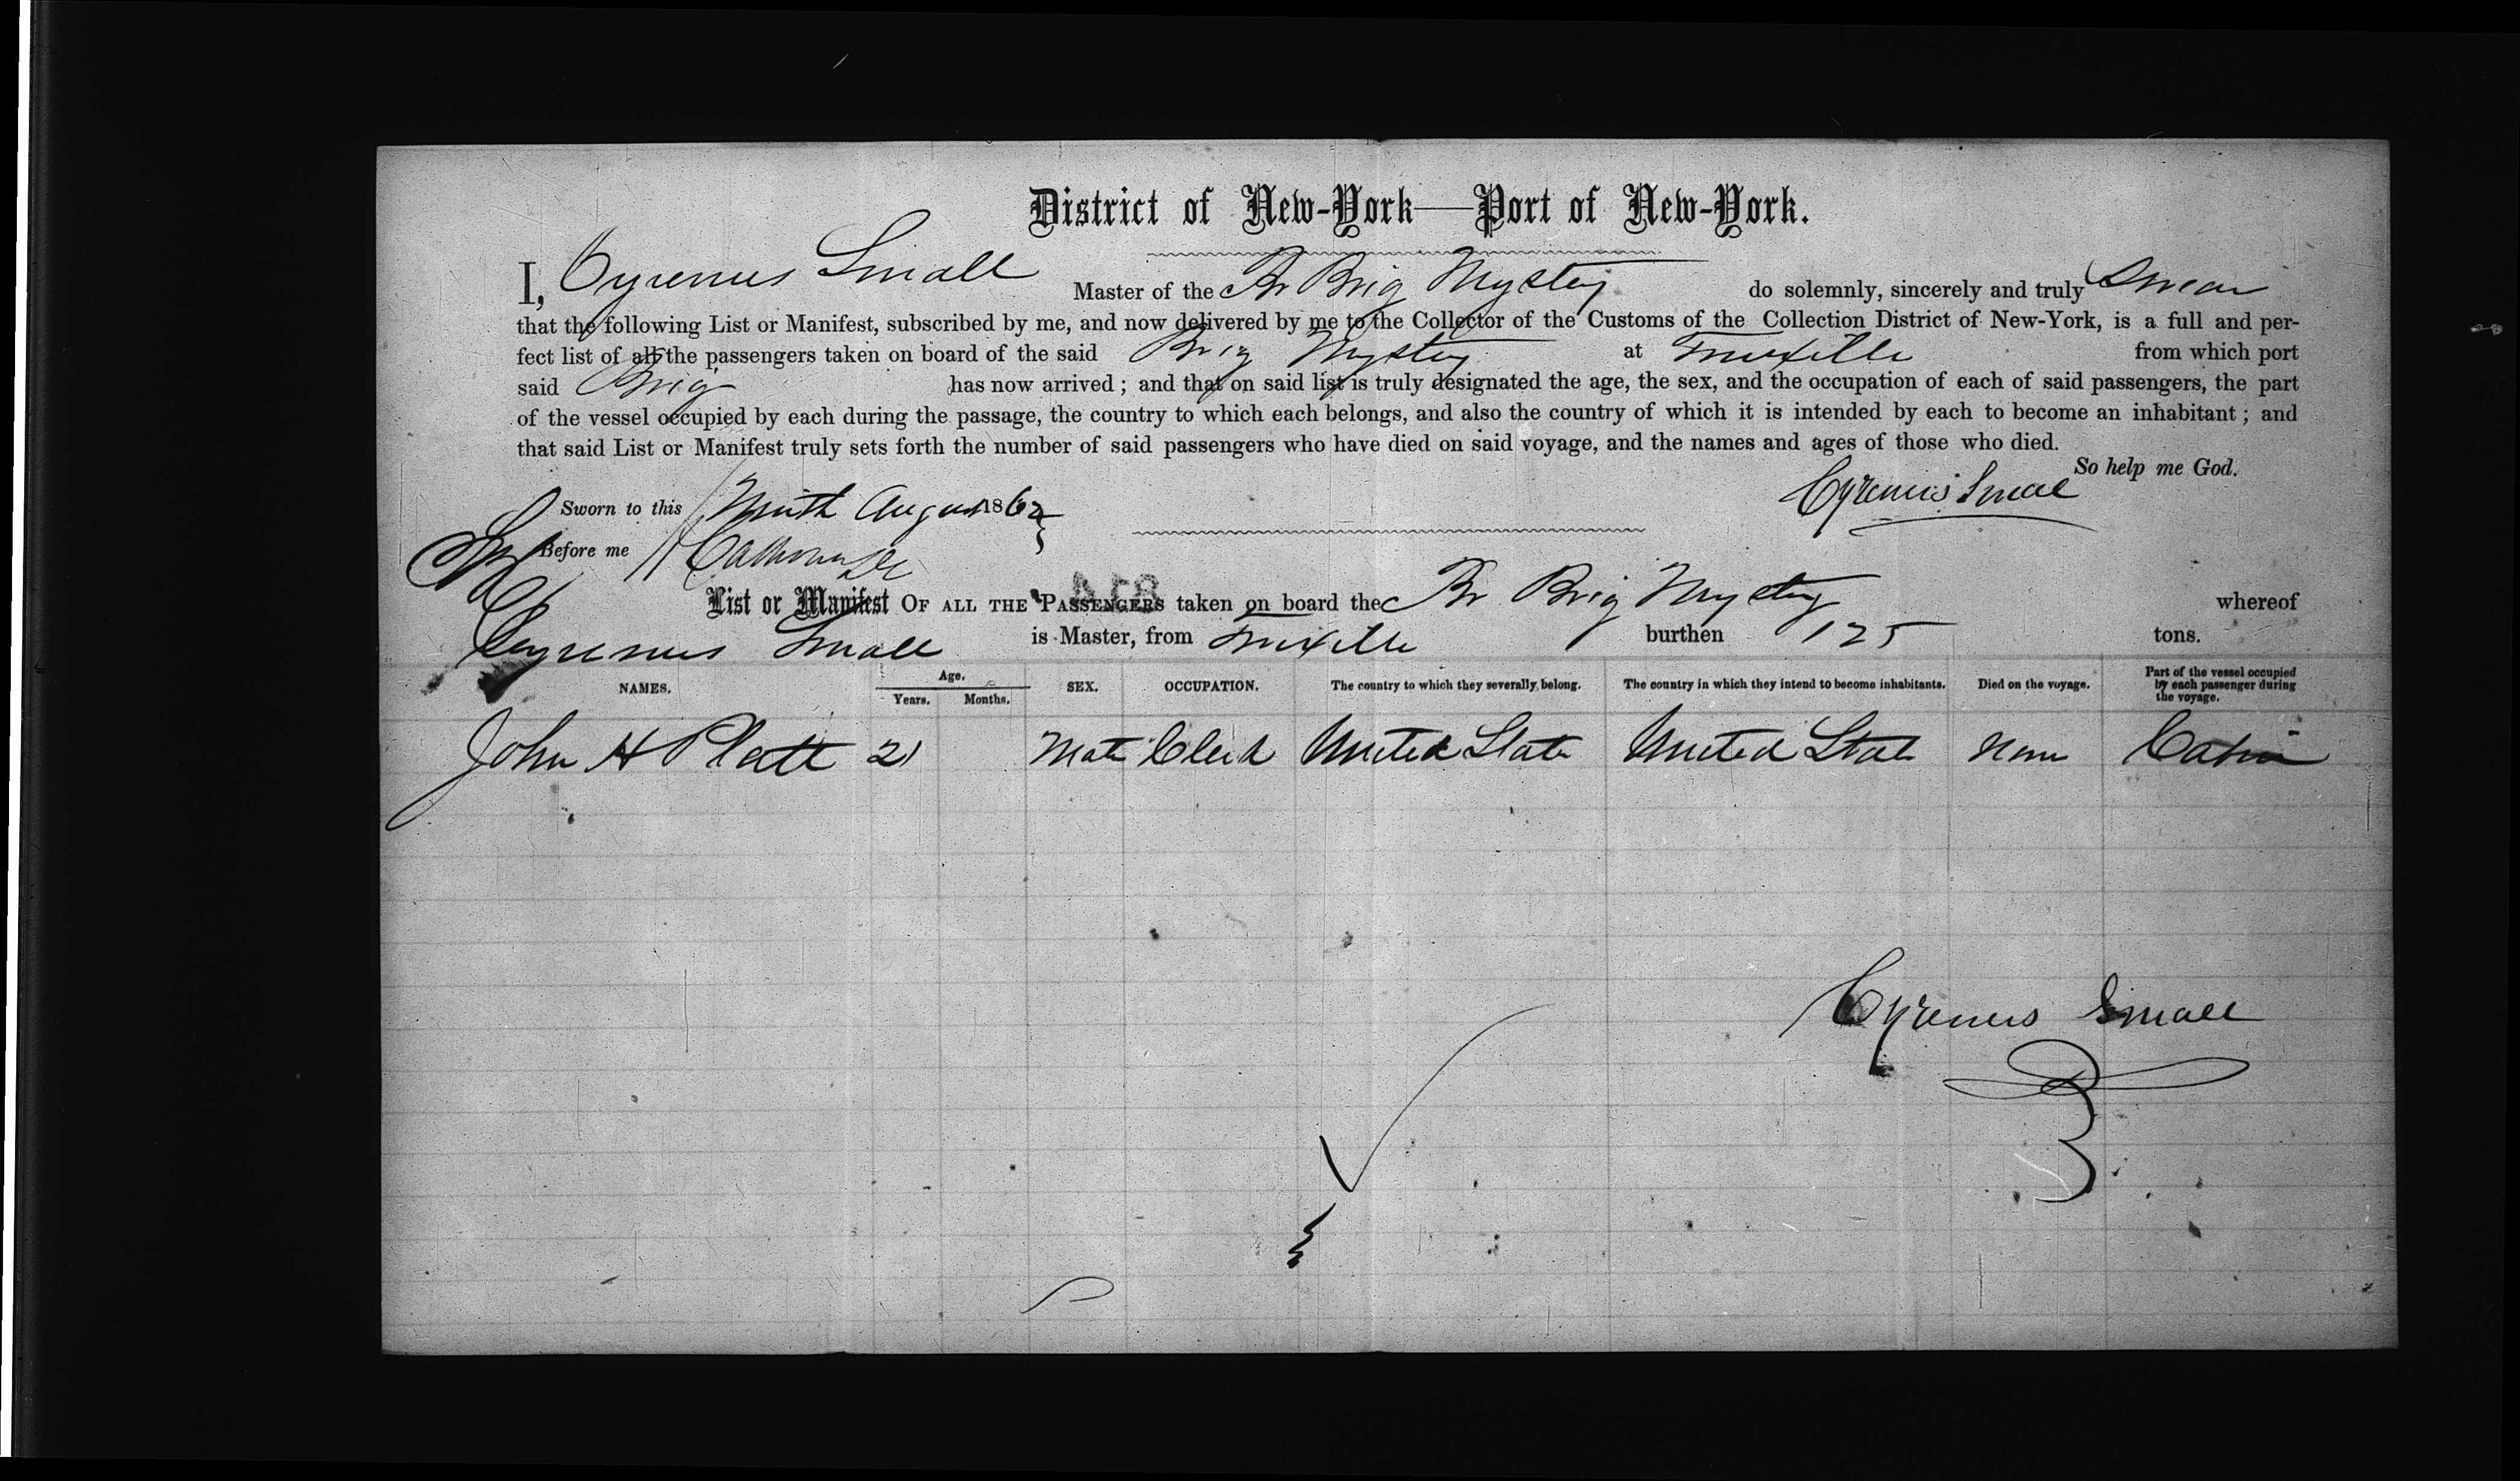 District of New-York—Port of New-York.
I, Cyrenus Small Master of the Br Brig Mystery do solemnly, sincerely and truly Swear
that the following List or Manifest, subscribed by me, and now delivered by me to the Collector of the Customs of the Collection District of New-York, is a full and per-
fect list of all the passengers taken on board of the said Brig Mystery at Truxillo from which port
said Brig has now arrived; and that on said list is truly designated the age, the sex, and the occupation of each of said passengers, the part
of the vessel occupied by each during the passage, the country to which each belongs, and also the country of which it is intended by each to become an inhabitant; and
that said List or Manifest truly sets forth the number of said passengers who have died on said voyage, and the names and ages of those who died.
So help me God.
Sworn to this Ninth August 1862 Cyrenus Small
Before me
List or Manifest OF ALL THE PASSENGERS taken on board the Br Brig Mystery whereof
Cyrenus Small is Master, from Truxillo burthen 125 tons.
NAMES. Age. Years. Months. SEX. OCCUPATION. The country to which they severally belong. The country in which they intend to become inhabitants. Died on the voyage. Part of the vessel occupied by each passenger during the voyage.
John H Platt 21 Male Clerk United State United State None Cabin
Cyrenus Small